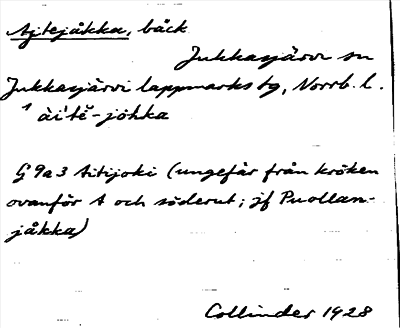 Ajtejåkka, bäck
Jukkasjärvi sn
Jukkasjärvi lappmarks tg, Norrb. l.
¹ àiˈtĕ-johka
G 9a3 Aitijoki (ungefär från kröken
ovanför A och söderut; jf Puollan-
jåkka)
Collinder 1928